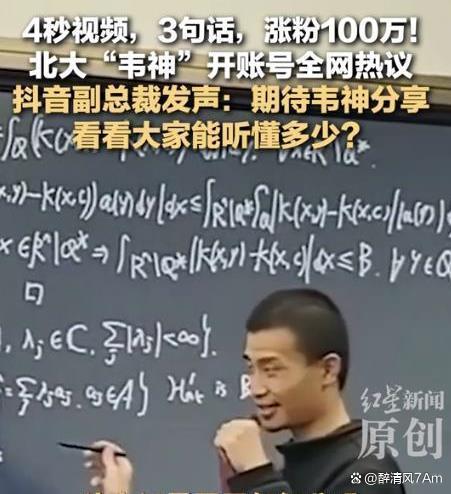 4秒视频，3句话，涨粉100万！
北大“韦神”开账号全网热议
抖音副总裁发声：期待韦神分享
看看大家能听懂多少？
x,y)-K(x,c))a(y)dy|dx≤∫R^n\Q*∫Q|K(x,y)-K(x,c)||a(y)|
x∈R^n\Q* ⇒ ∫R^n\Q*|K(x,y)-K(x,c)|dx≤B. ∀y∈Q
□
, λj∈C, ∑j|λj|<∞}.
=∑j λj aj, aj∈A} H'at is B
红星新闻
原创
@醉清风7Am